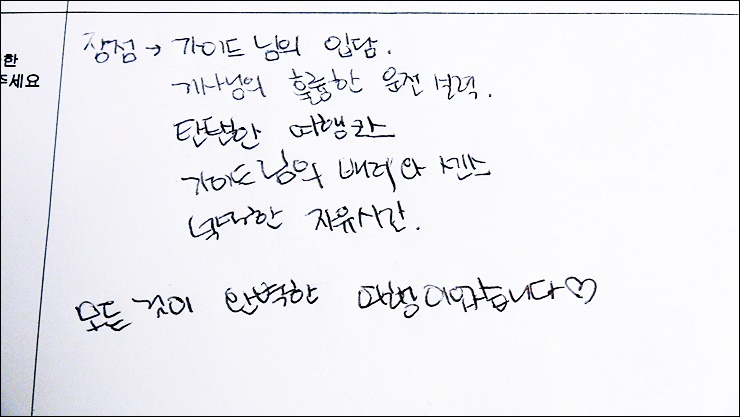 한
주세요
장점 → 가이드님의 입담.
기사님의 훌륭한 운전실력.
탄탄한 여행코스
가이드님의 배려와 센스
넉넉한 자유시간.
모든 것이 완벽한 여행이었습니다♡